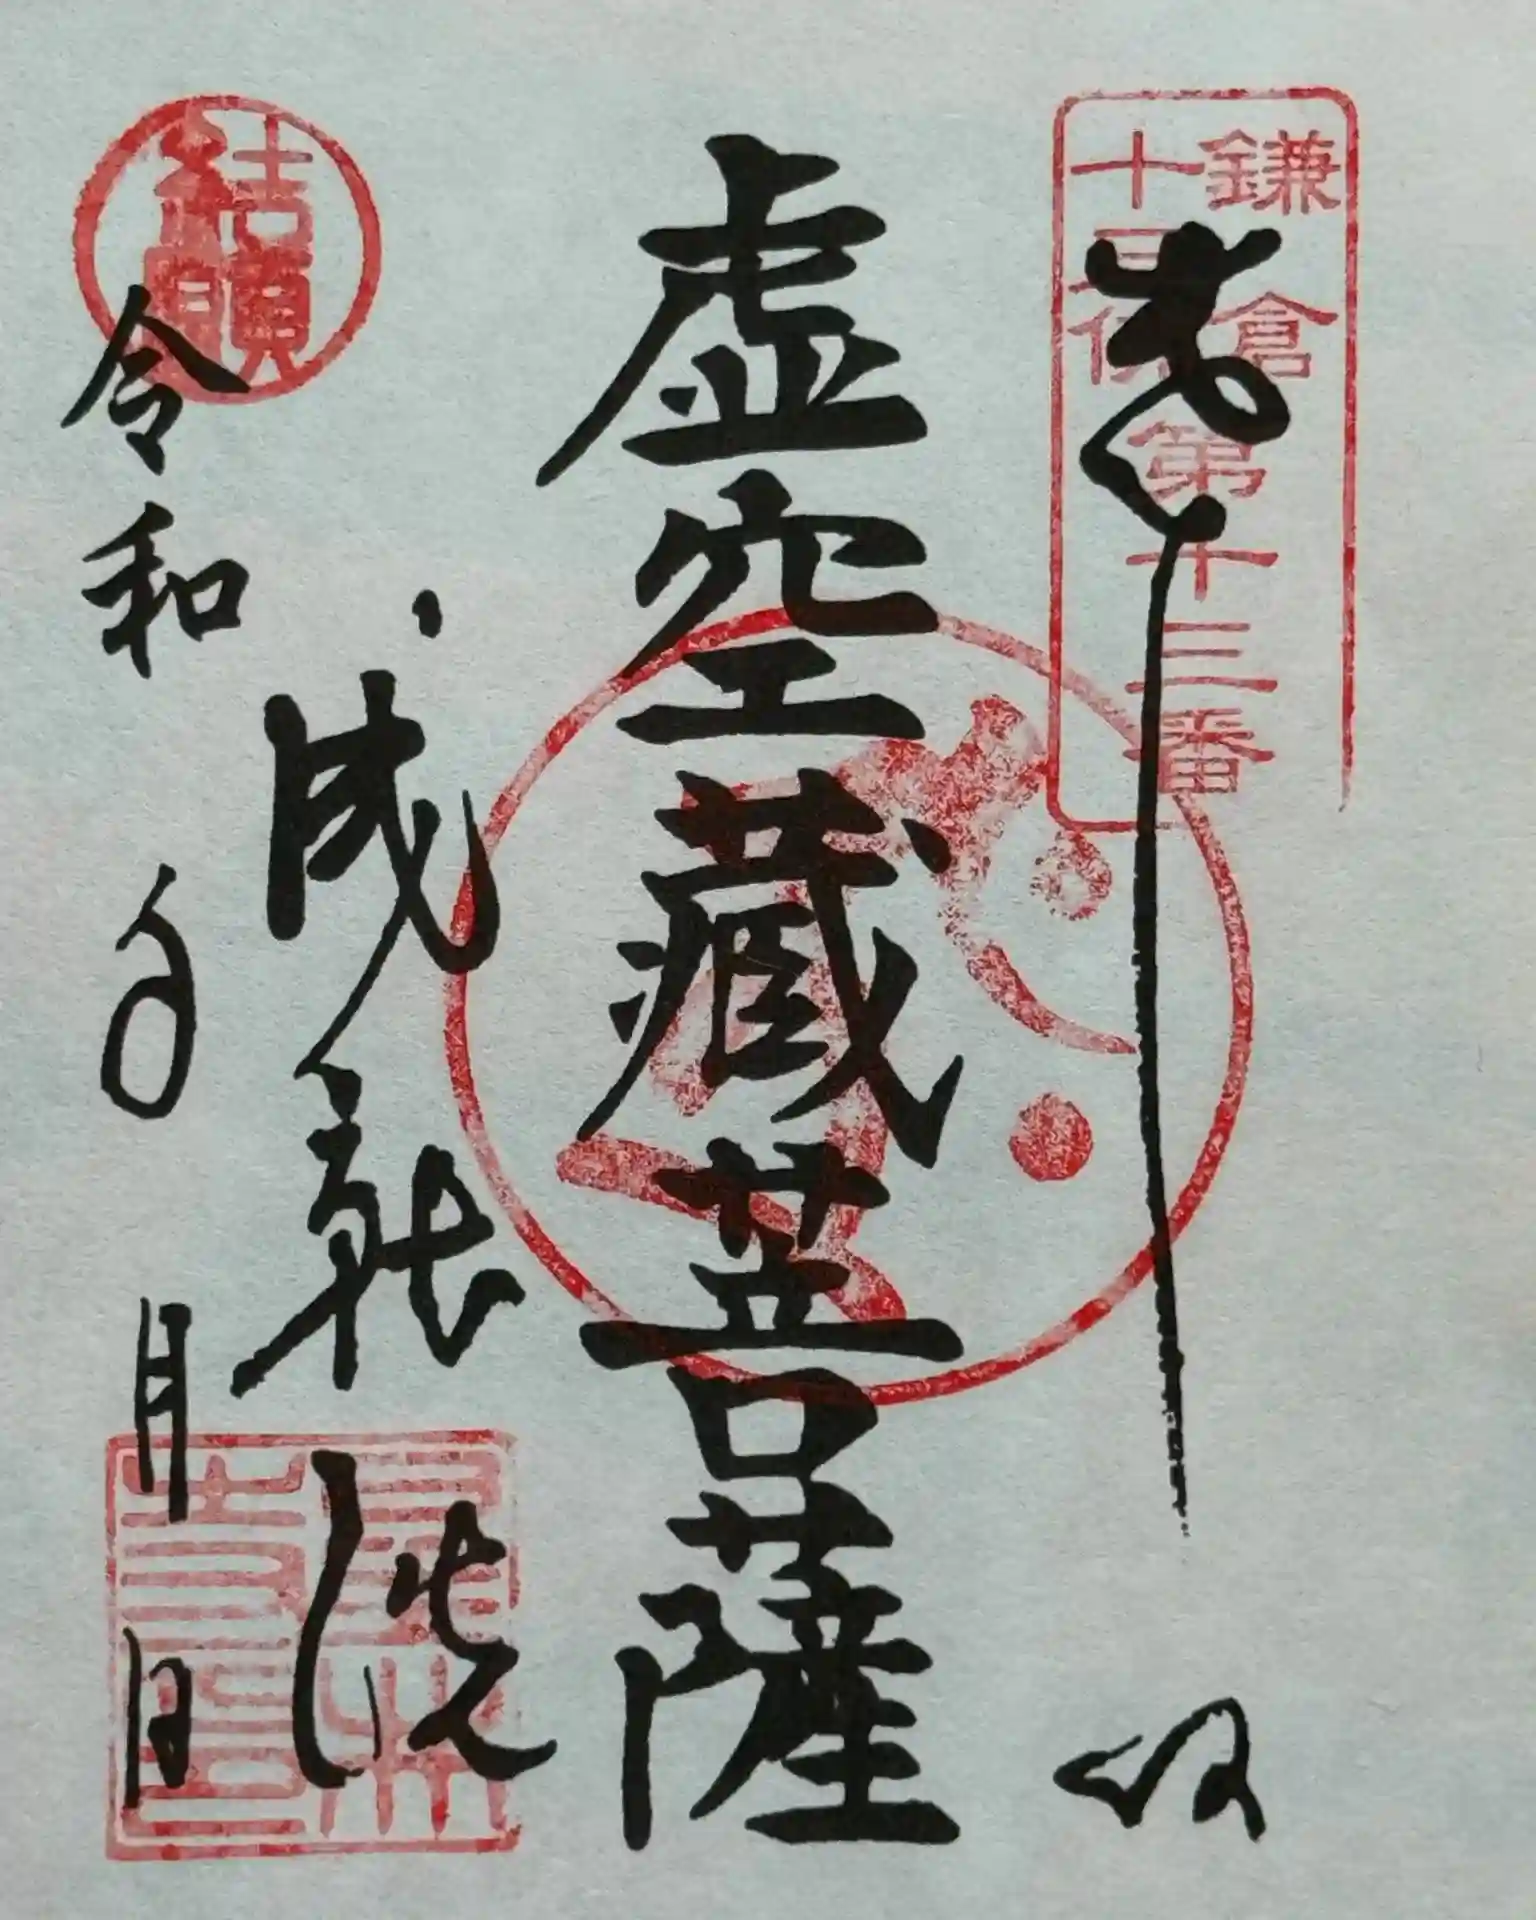 奉拝
鎌倉
十三佛
第十三番
虚空蔵菩薩
成就院
結願
令和 年 月 日